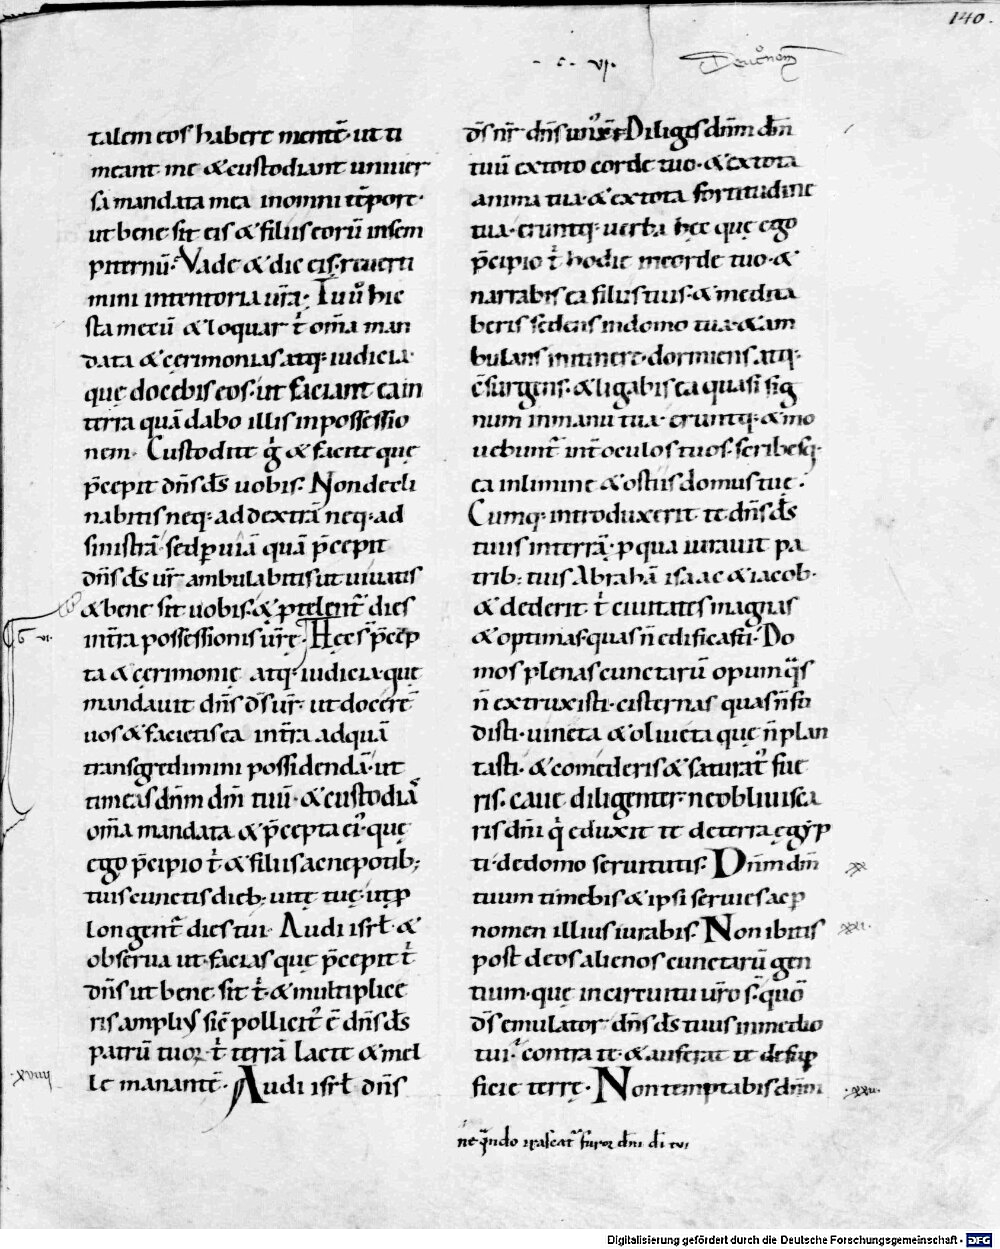 140.
· c · vi ·
Deut̉nom̄
talem eos habere mentē· ut ti
meant me & custodiant univer
sa mandata mea in omni tēpore·
ut bene sit eis & filiis eorū in sem
piternū· Vade & dic eis· reverti
mini in tentoria vr̄a· Tu u̇ hic
sta mecū & loquar t̄ om̄a man
data & cęrimonias atq· iudicia·
quę docebis eos· ut faciant ea in
terra quā dabo illis in possessio
nem· Custodite ġ & facite quę
p̄cepit dn̄s ds̄ vobis· Non decli
nabitis neq· ad dextrā neq· ad
sinistrā· sed p viā quā p̄cepit
dn̄s ds̄ vr̄ ambulabitis ut vivatis
& bene sit vobis· & ptelent̃ dies
in tr̄a possessionis vr̄ę· Hęc s̄ p̄cep
c̄ vi·
ta & cęrimonię atq· iudicia· quę
mandavit dn̄s ds̄ vr̄· ut docerē
vos & faciatis ea in tr̄a ad quā
transgredimini possidendā· ut
timeas dn̄m dm̄ tuū· & custodiā
om̄a mandata & p̄cepta ei᾽· quę
ego p̄cipio t̄· & filiis ac nepotib;
tuis cunctis dieb; vitę tuę· ut p
longent̃ dies tui· Audi isrł· &
observa ut facias quę p̄cepit t̄
dn̄s ut bene sit t̄· & multiplice
ris amplius sic̄ pollicit᾽ ē dn̄s ds̄
patrū tuoꝝ t̄ terrā lacte & mel
le manantē· Audi isrł dn̄s
xviiii
ds̄ nr̄ dn̄s un᾽ ē· Diliges dn̄m dm̄
tuū ex toto corde tuo· & ex tota
anima tua· & ex tota fortitudine
tua· eruntq· verba hęc quę ego
p̄cipio t̄ hodie in corde tuo· &
narrabis ea filiis tuis· & medita
beris sedens in domo tua· & am
bulans in itinere· dormiens atq·
c̄surgens· & ligabis ea quasi sig
num in manu tua· eruntq· & mo
vebunt̃ int̄ oculos tuos· scribesq·
ea in limine & ostiis domus tuę·
Cumq· introduxerit te dn̄s ds̄
tuus in terrā· p qua iuravit pa
trib; tuis Abrahā isaac & iacob·
& dederit t̄ civitates magnas
& optimas· quas n̄ edificasti· Do
mos plenas cunctarū opum q̄s
n̄ extruxisti· cisternas quas n̄ fo
disti· vineta & oliveta quę n̄ plan
tasti· & comederis & saturat᾽ fue
ris· cave diligenter· ne oblivisca
ris dn̄i q̇ eduxit te de terra ęgyp
ti· de domo servitutis· Dn̄m dm̄
xx
tuum timebis & ipsi servies ac p
nomen illius iurabis· Non ibitis
xxi·
post deos alienos cunctarū gen
tium· quę in circuitu vr̄o s̄· quō
ds̄ emulator dn̄s ds̄ tuus in medio
tui· contra te· & auferat te de sup
ficie terrę· Non temptabis dn̄m
xxii·
ne q̄ndo irascat̃ furor dn̄i di̅ tui